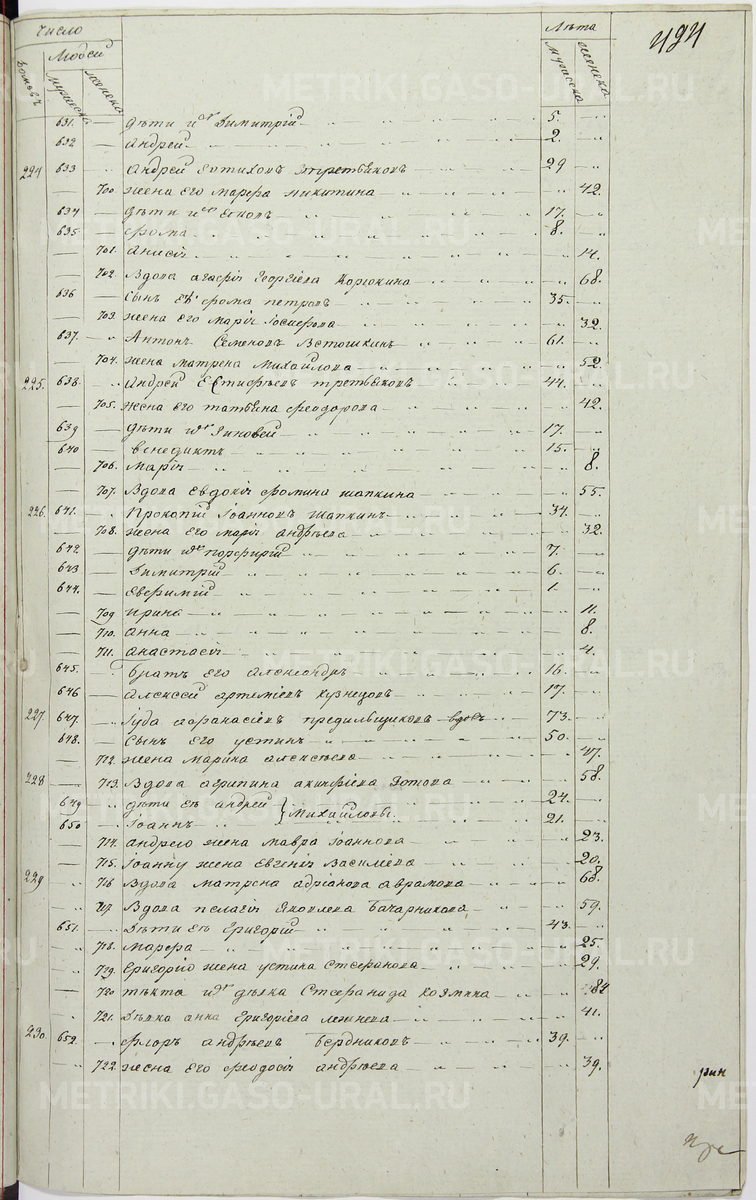 число
Лѣта
494
Людей
домовъ
мужеска
женска
мужеска
женска
631. дѣти ихъ Димитрій 5.
632 Андрей 2.
224 633 Андрей Евтихов Третьяковъ 29
700 жена его Марфа Никитина 42.
634 дѣти ихъ 17.
635 Фома 8.
701. Анисія 14.
702. Вдова Агафія Георгіева Корюкина 68.
636 Сынъ ея Фома Петровъ 35.
703. жена его Марія Іосифова 32.
637. Антонъ Семеновъ Ветошкинъ 61.
704. жена Матрена Михайлова 52.
225. 638. Андрей Евстифѣевъ Третьяковъ 44.
705. жена его Татьяна Феодорова 42.
639 дѣти ихъ Зиновей 17.
640 Венедиктъ 15.
706. Марія 8.
707. Вдова Евдокія Фомина Шапкина 55.
226. 641. Прокопій Іоанновъ Шапкинъ 34.
708. жена его Марія Андрѣева 32.
642 дѣти ихъ Порфирій 7.
643 Димитрій 6.
644. Евфимій 1.
709 Ирина 11.
710. Анна 8.
711. Анастасія 4.
645. Братъ его Александръ 16.
646 Алексей Артеміевъ Кузнецовъ 17.
227. 647. Іуда Афанасіевъ Предильщиковъ вдовъ 73.
648. Сынъ его Устинъ 50.
712. жена Марина Алексѣева 47.
228 713. Вдова Агрипина Акинфіева Зотова 58.
649 дѣти ея Андрей } Михайловы. 24.
650 Іоаннъ 21.
714. Андрею жена Мавра Іоаннова 23.
715. Іоанну жена Евгенія Василіева 20.
229 716 Вдова Матрена Адріанова Аврамова 68.
717 Вдова Пелагія Яковлева Бачарникова 59.
651. Дѣти ея Григорій 43.
718. Марфа 25.
719. Григорію жена Устина Стефанова 29.
720 тѣкта ихъ дѣвка Стефанида Козмина 84
721. Дѣвка Анна Григоріева 41.
230 652. Флоръ Андрѣевъ Бердниковъ 39.
722 жена его Феодосія Андрѣева 39.
рин
METRIKI.GASO-URAL.RU